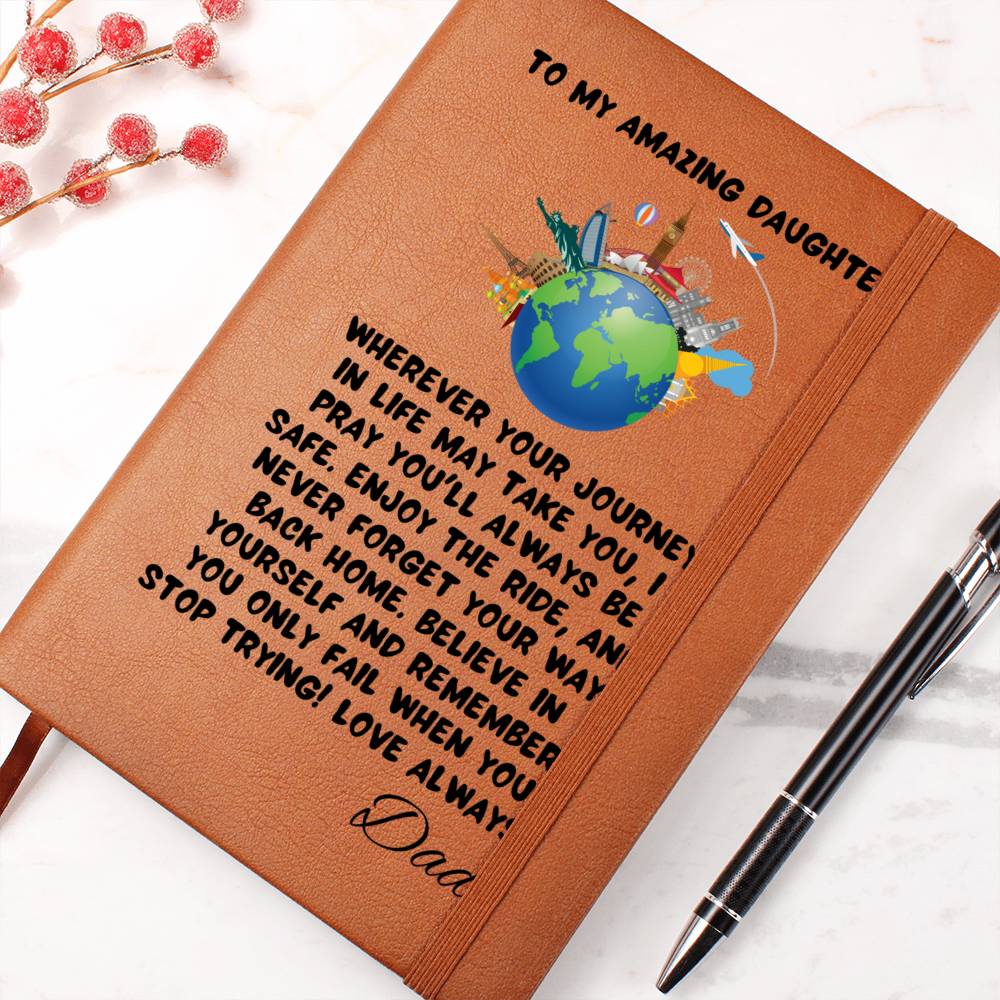 TO MY AMAZING DAUGHTE
WHEREVER YOUR JOURNEY
IN LIFE MAY TAKE YOU, I
PRAY YOU'LL ALWAYS BE
SAFE. ENJOY THE RIDE, AN
NEVER FORGET YOUR WAY
BACK HOME. BELIEVE IN
YOURSELF AND REMEMBER
YOU ONLY FAIL WHEN YOU
STOP TRYING! LOVE ALWAYS
Dad